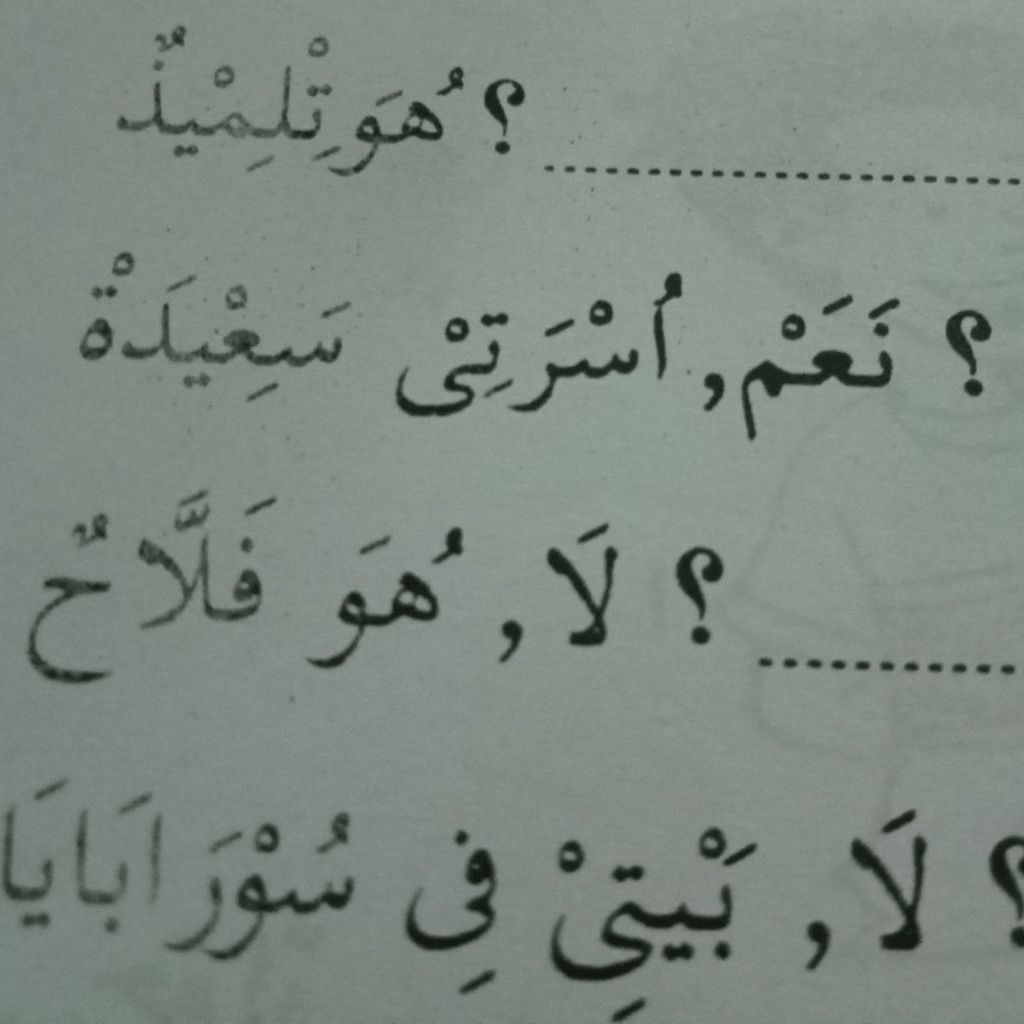 ..............................؟ هُوَ تِلْمِيْذٌ
؟ نَعَمْ, اُسْرَتِىْ سَعِيْدَةْ
................؟ لَا, هُوَ فَلَّاحٌ
؟ لَا, بَيْتِىْ فِى سُوْرَابَايَا